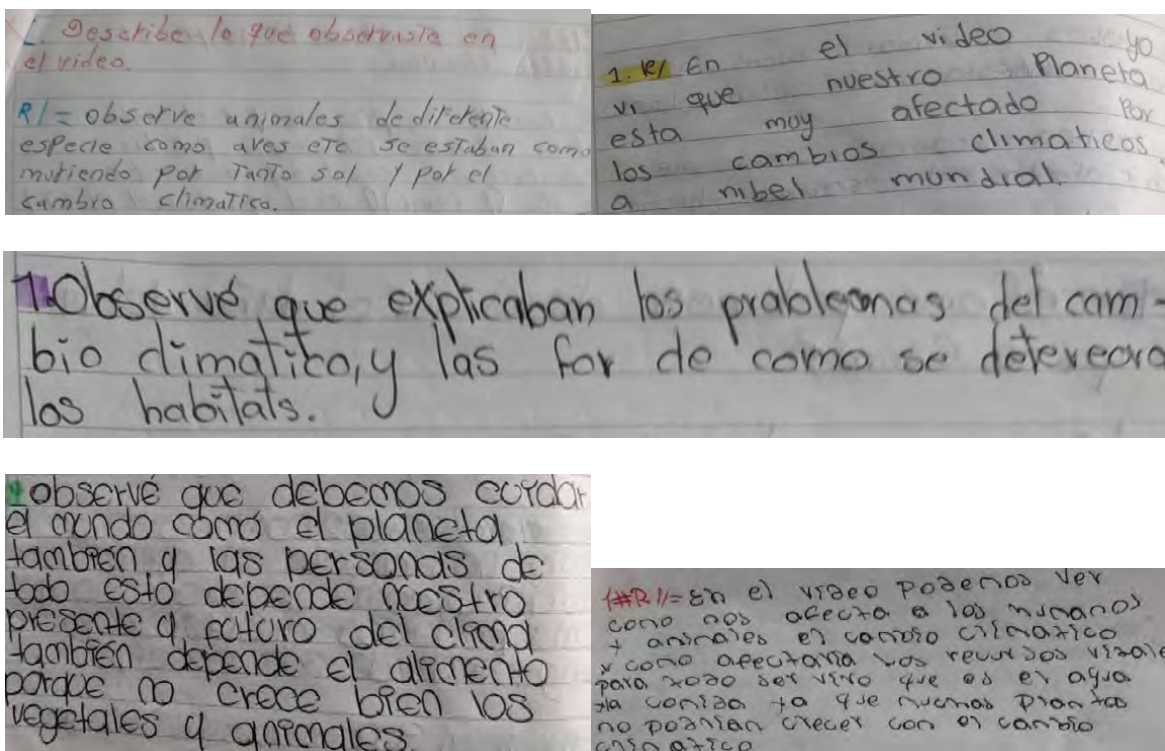 1. Describe lo que observaste en
el video.
R/= observe animales de diferente
especie como aves etc se estaban como
muriendo por tanto sol y por el
cambio climatico.
1. R/ En el video yo
vi que nuestro Planeta
esta muy afectado Por
los cambios climaticos
a nibel mundial.
1. Observé que explicaban los problemas del cam-
bio climatico, y las for de como se detereora
los habitats.
observé que debemos cuidar
el mundo como el planeta
también y las personas de
todo esto depende nuestro
presente y futuro del clima
también depende el alimento
porque no crece bien los
vegetales y animales.
1#R//= En el video podemos ver
como nos afecta a los humanos
y animales el cambio climatico
y como afectaria los recursos vitale
para todo ser vivo que es el agua
la comida ya que muchas plantas
no podrian crecer con el cambio
climatico